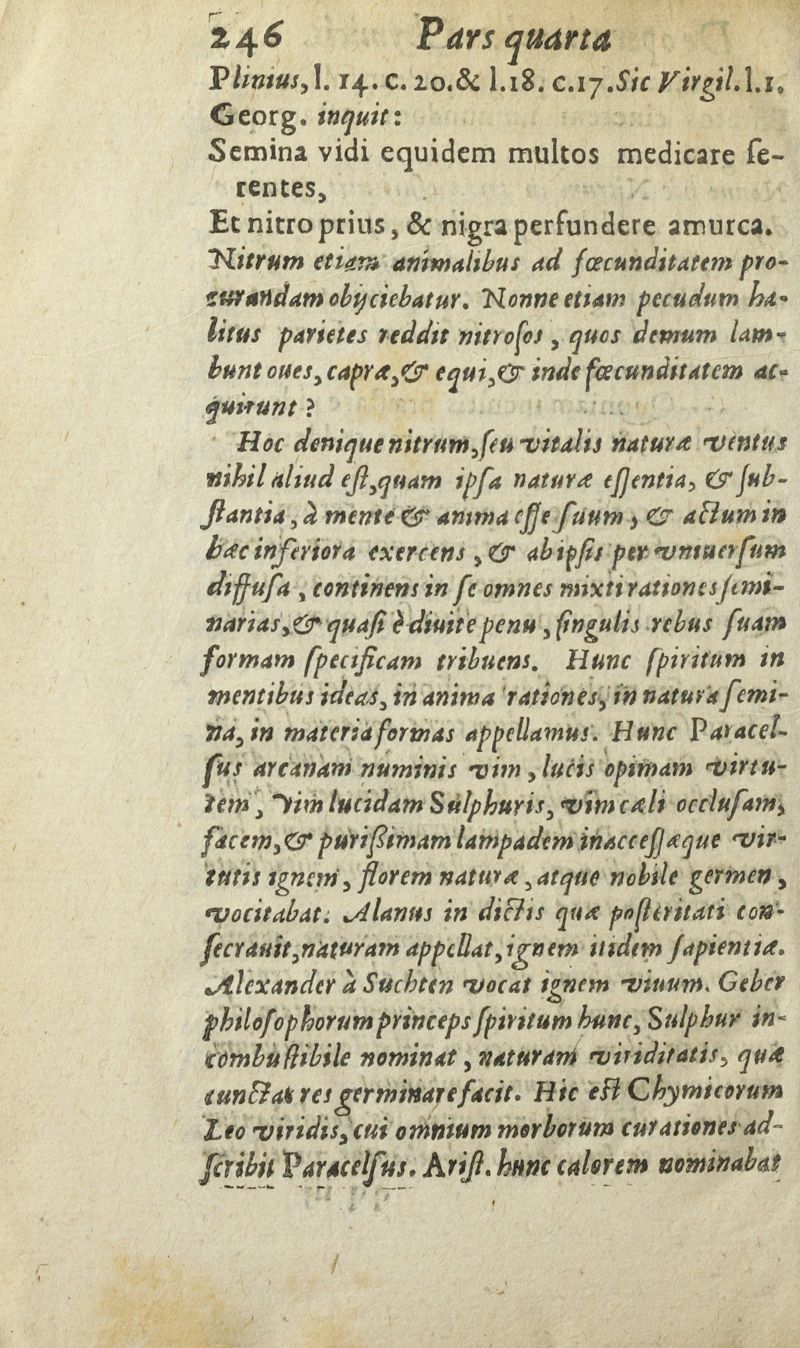 246 Pars quarta
Plinius, l. 14. c. 20. & l. 18. c. 17. Sic Virgil. l. 1.
Georg. inquit:
Semina vidi equidem multos medicare ſe-
rentes,
Et nitro prius, & nigra perfundere amurca.
Nitrum etiam animalibus ad fœcunditatem pro-
curandam obijciebatur. Nonne etiam pecudum ha-
litus parietes reddit nitroſos, quos demum lam-
bunt oues, capræ, & equi, & inde fœcunditatem ac-
quirunt?
Hoc denique nitrum, ſeu vitalis naturæ ventus
nihil aliud eſt, quam ipſa naturæ eſſentia, & ſub-
ſtantia, à mente & anima eſſe ſuum, & actum in
hæc inferiora exercens, & ab ipſis per vniuerſum
diffuſa, continens in ſe omnes mixti rationes ſemi-
narias, & quaſi è diuite penu, ſingulis rebus ſuam
formam ſpecificam tribuens. Hunc ſpiritum in
mentibus ideas, in anima rationes, in natura ſemi-
na, in materia formas appellamus. Hunc Paracel-
ſus arcanam numinis vim, lucis opimam virtu-
tem, vim lucidam Sulphuris, vim cæli occluſam,
facem, & purißimam lampadem inacceſſæque vir-
tutis ignem, florem naturæ, atque nobile germen,
vocitabat. Alanus in dictis quæ poſteritati con-
ſecrauit, naturam appellat, ignem itidem ſapientiæ.
Alexander à Suchten vocat ignem viuum. Geber
philoſophorum princeps ſpiritum hunc, Sulphur in-
combuſtibile nominat, naturam viriditatis, quæ
cunctas res germinare facit. Hic eſt Chymicorum
Leo viridis, cui omnium morborum curationes ad-
ſcribit Paracelſus. Ariſt. hunc calorem nominabat